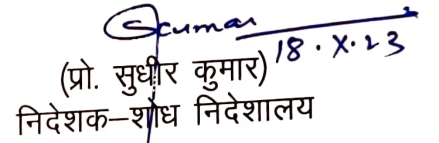 Scumar
18.X.23
(प्रो. सुधीर कुमार)
निदेशक–शोध निदेशालय